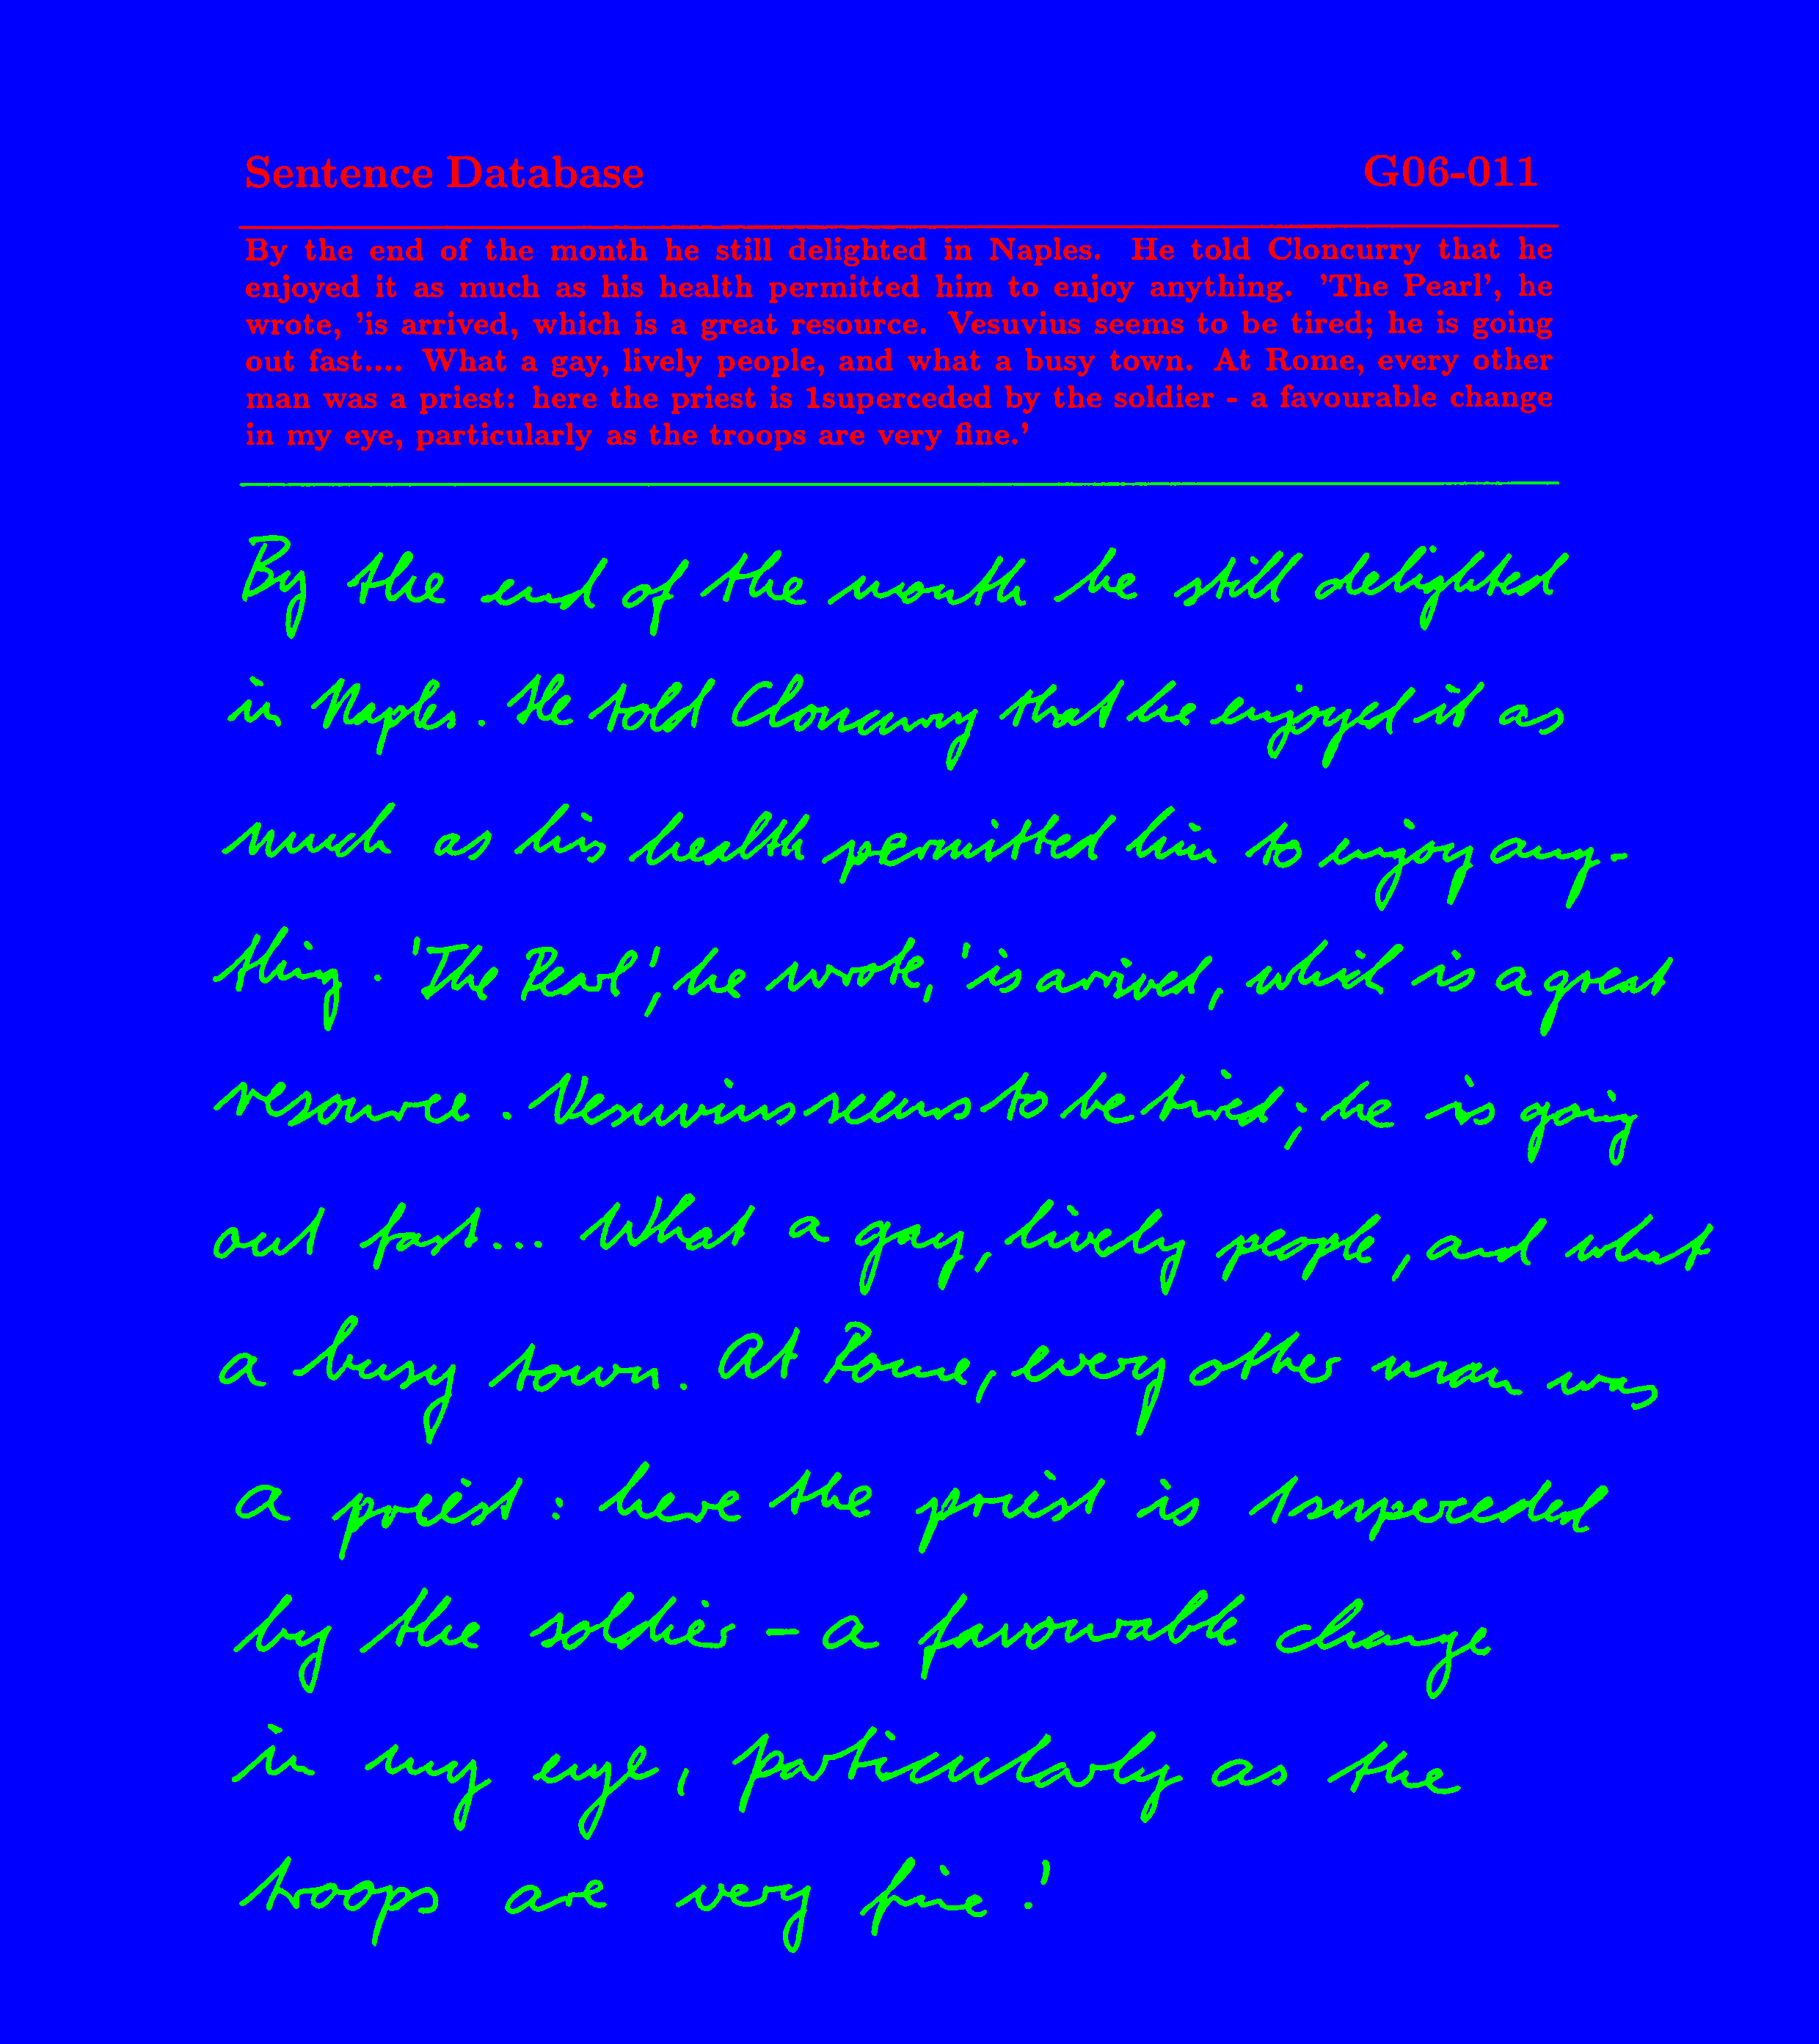 Sentence Database G06-011
By the end of the month he still delighted in Naples. He told Cloncurry that he
enjoyed it as much as his health permitted him to enjoy anything. 'The Pearl', he
wrote, 'is arrived, which is a great resource. Vesuvius seems to be tired; he is going
out fast.... What a gay, lively people, and what a busy town. At Rome, every other
man was a priest: here the priest is 1superceded by the soldier - a favourable change
in my eye, particularly as the troops are very fine.'
By the end of the month he still delighted
in Naples. He told Cloncurry that he enjoyed it as
much as his health permitted him to enjoy any-
thing. 'The Pearl', he wrote, 'is arrived, which is a great
resource. Vesuvius seems to be tired; he is going
out fast... What a gay, lively people, and what
a busy town. At Rome, every other man was
a priest: here the priest is 1superceded
by the soldier - a favourable change
in my eye, particularly as the
troops are very fine.'